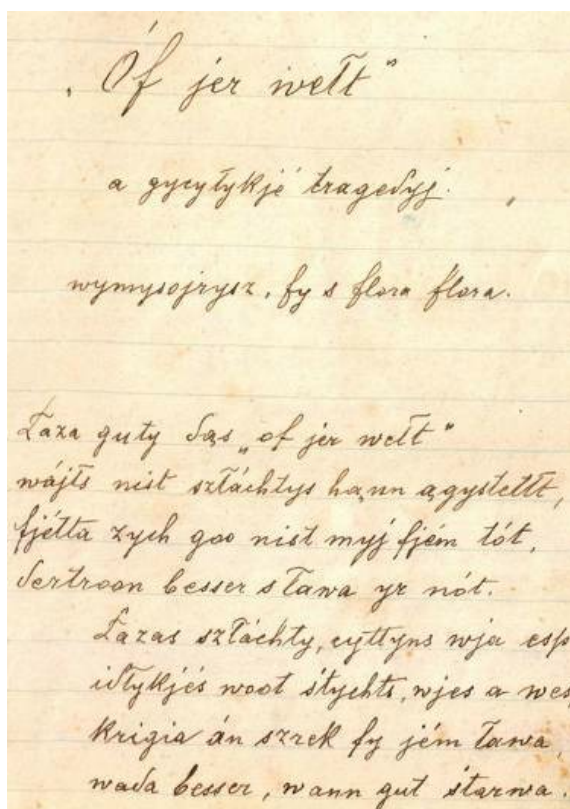 „Óf jer wełt”
a gycyłykjé tragedyj.
wymysojrysz, fy s flora flora.
Łaza guty dąs „of jer wełt”
wájłs nist szłáchtys ha,nn agystełłt,
fjétta zych goo nist myj fjém tót,
dertroon besser s ława yr nót.
Łazas szłáchty, cyttyns wja esp
idłykjés woot śtychts, wjes a wes
krigia án szrek fy jém ława,
wada besser, wann gut śtarwa.